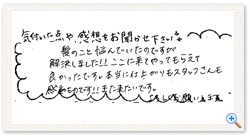 気付いた点や感想をお聞かせ下さい。
髪のこと悩んでいたのですが
解決しました!!ここに来てやってもらえて
良かったです。本当に仕上がりもスタッフさんも
感動ものです!!また来たいです。
お願い